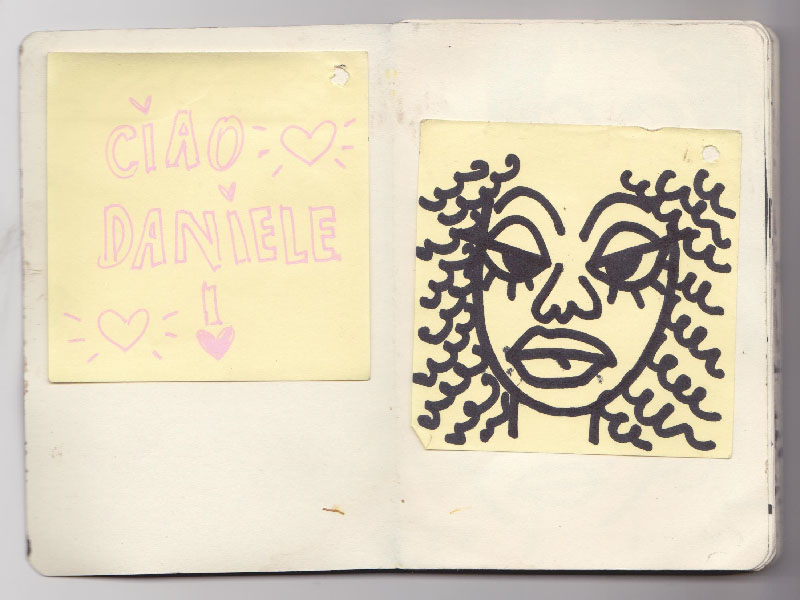 CIAO
DANIELE
!